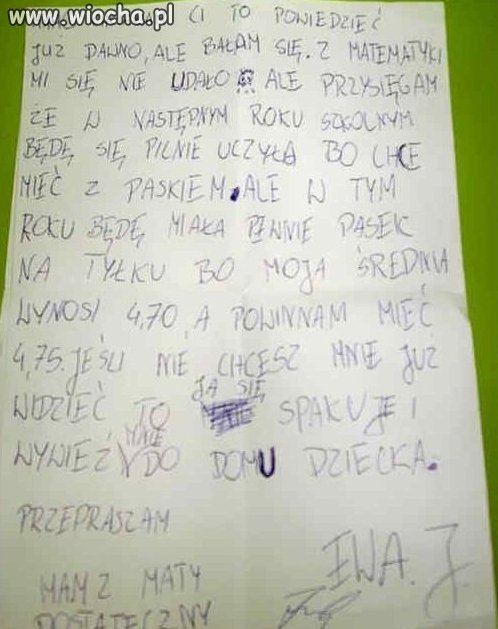 www.wiocha.pl
CI TO POWIEDZIEĆ
JUŻ DAWNO, ALE BAŁAM SIĘ. Z MATEMATYKI
MI SIĘ NIE UDAŁO ALE PRZYSIĘGAM
ŻE W NASTĘPNYM ROKU SZKOLNYM
BĘDĘ SIĘ PILNIE UCZYŁA BO CHCE
MIEĆ Z PASKIEM. ALE W TYM
ROKU BĘDĘ MIAŁA PEWNIE PASEK
NA TYŁKU BO MOJA ŚREDNIA
WYNOSI 4,70, A POWINNAM MIEĆ
4,75. JEŚLI NIE CHCESZ MNIE JUŻ
WIDZIEĆ TO JA SIĘ SPAKUJE I
WYWIEŹ MNIE DO DOMU DZIECKA.
PRZEPRASZAM
IWA. J.
MAM Z MATY
DOSTATECZNY